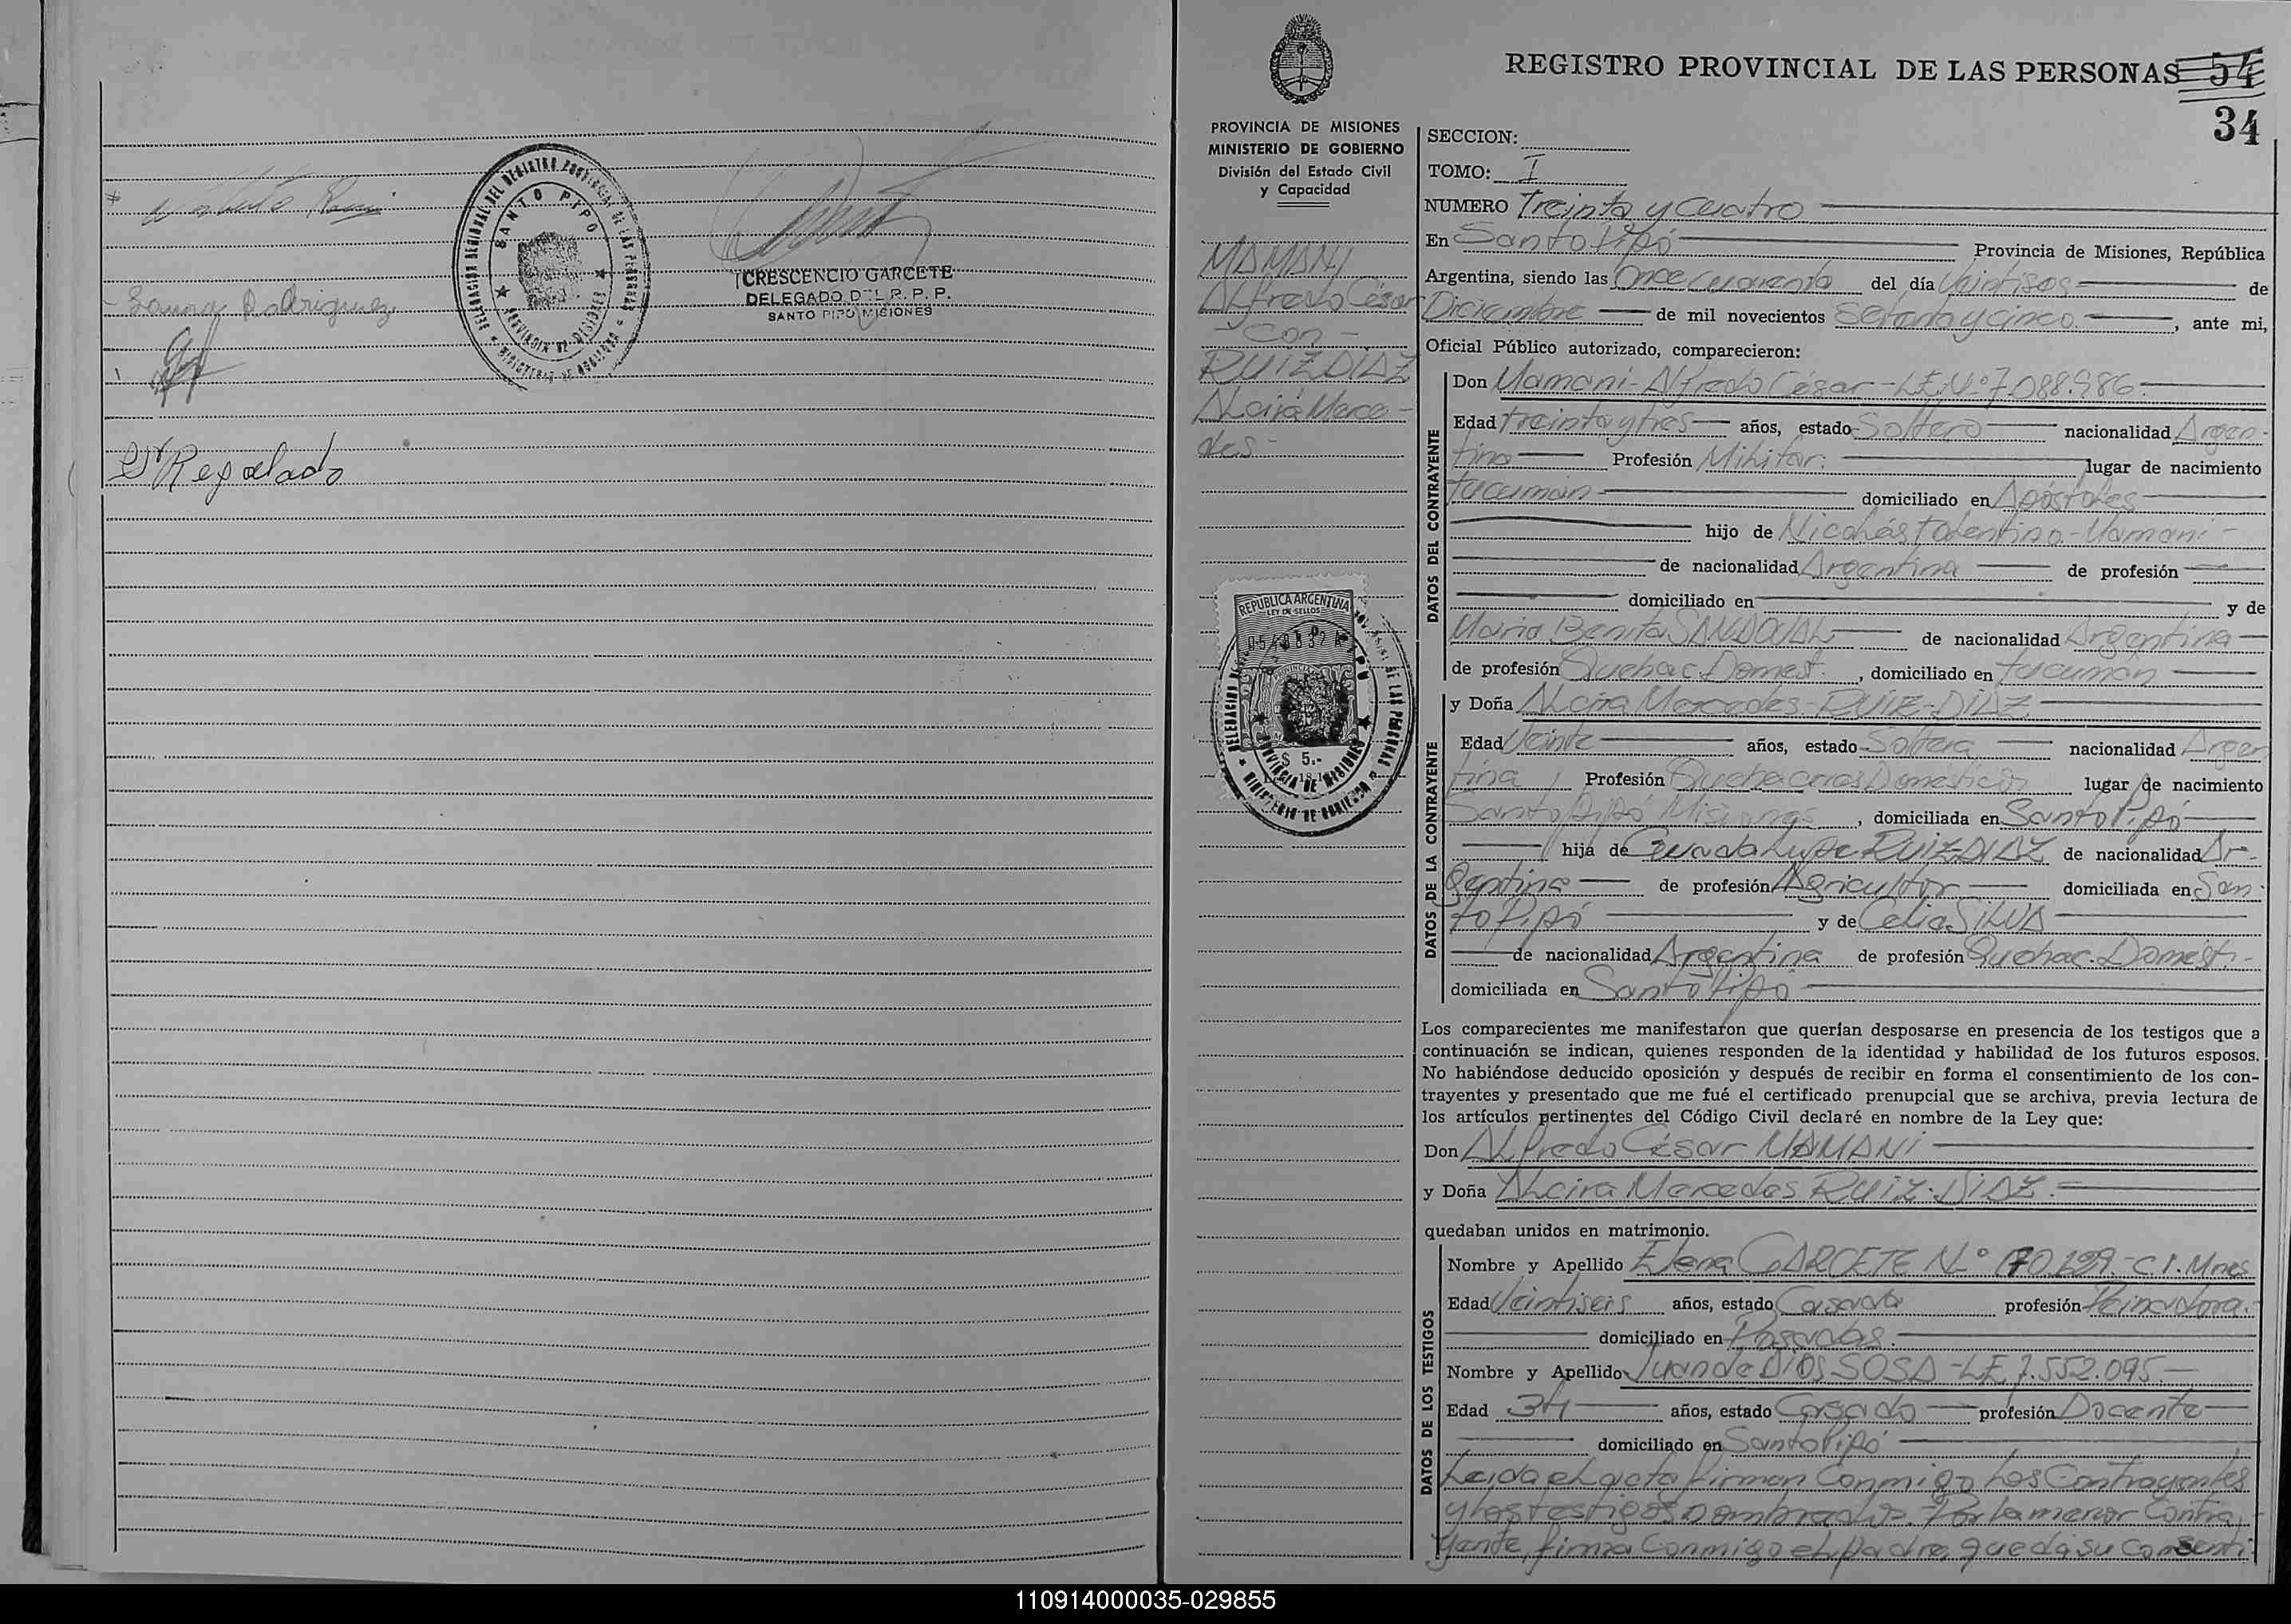 Laura Rodriguez
Regalado
DELEGACION REGIONAL DEL REGISTRO PROVINCIAL DE LAS PERSONAS
SANTO PIPO
PROVINCIA DE MISIONES
MINISTERIO DE GOBIERNO
CRESCENCIO GARCETE
DELEGADO DEL R. P. P.
SANTO PIPO MISIONES
REGISTRO PROVINCIAL DE LAS PERSONAS 54
34
PROVINCIA DE MISIONES
MINISTERIO DE GOBIERNO
División del Estado Civil
y Capacidad
MAMANI
Alfredo César
- Con -
RUIZ DIAZ
Alcira Merce-
des-
REPUBLICA ARGENTINA
LEY DE SELLOS
$ 5.-
PROVINCIA DE MISIONES
MINISTERIO DE GOBIERNO
SECCION:
TOMO: I
NUMERO Treinta y Cuatro
En Santo Pipó Provincia de Misiones, República
Argentina, siendo las Once cuarenta del día Veintisos de
Diciembre de mil novecientos Setenta y cinco. , ante mi,
Oficial Público autorizado, comparecieron:
DATOS DEL CONTRAYENTE
Don Mamani - Alfredo César - LE. Nº 7.088.986.
Edad treinta y tres años, estado Soltero nacionalidad Argen-
tina Profesión Militar. lugar de nacimiento
Tucumán domiciliado en Apóstoles
hijo de Nicolás Tolentino - Mamani -
de nacionalidad Argentina de profesión
domiciliado en y de
Maria Benita SANDOVAL de nacionalidad Argentina
de profesión Quehac. Domest. , domiciliado en Tucumán
DATOS DE LA CONTRAYENTE
y Doña Alcira Mercedes - RUIZ - DIAZ
Edad Veinte años, estado Soltera nacionalidad Argen
tina, Profesión Quehaceres Domésticos lugar de nacimiento
Santo Pipó Misiones , domiciliada en Santo Pipó
hija de Guadalupe RUIZ DIAZ de nacionalidad Ar-
gentina de profesión Agricultor domiciliada en San-
to Pipó y de Celia SILVA
de nacionalidad Argentina de profesión Quehac. Domést. -
domiciliada en Santo Pipó
Los comparecientes me manifestaron que querían desposarse en presencia de los testigos que a
continuación se indican, quienes responden de la identidad y habilidad de los futuros esposos.
No habiéndose deducido oposición y después de recibir en forma el consentimiento de los con-
trayentes y presentado que me fué el certificado prenupcial que se archiva, previa lectura de
los artículos pertinentes del Código Civil declaré en nombre de la Ley que:
Don Alfredo César MAMANI
y Doña Alcira Mercedes RUIZ - DIAZ. -
quedaban unidos en matrimonio.
DATOS DE LOS TESTIGOS
Nombre y Apellido Elena GARCETE Nº 170.299.- C.I. Mnes
Edad Veintiseis años, estado Casada profesión Peinadora.
domiciliado en Posadas.
Nombre y Apellido Juan de DIOS SOSA - LE 7.552.095.-
Edad 34 años, estado Casado profesión Docente
domiciliado en Santo Pipó
Leida el acta firman Conmigo Los Contrayentes
y los testigos nombrados. - Por la menor Contra
yente, firma Conmigo el padre, que da su consenti
110914000035-029855